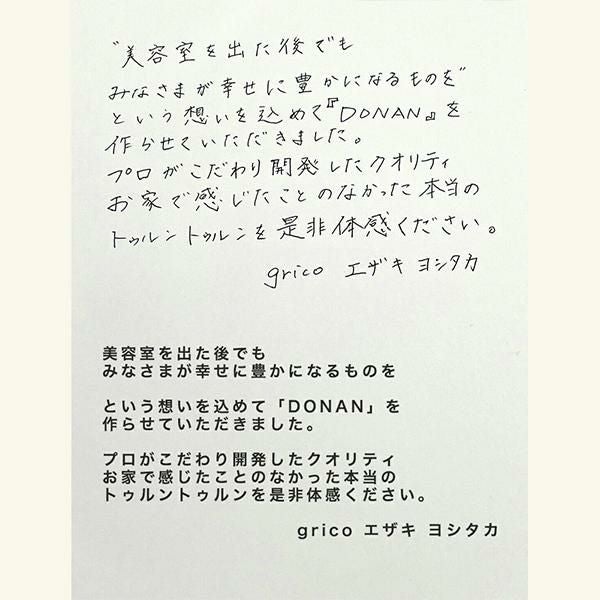 “美容室を出た後でも
みなさまが幸せに豊かになるものを”
という想いを込めて『DONAN』を
作らせていただきました。
プロがこだわり開発したクオリティ
お家で感じたことのなかった本当の
トゥルントゥルンを是非体感ください。
grico エザキ ヨシタカ
美容室を出た後でも
みなさまが幸せに豊かになるものを
という想いを込めて「DONAN」を
作らせていただきました。
プロがこだわり開発したクオリティ
お家で感じたことのなかった本当の
トゥルントゥルンを是非体感ください。
grico エザキ ヨシタカ